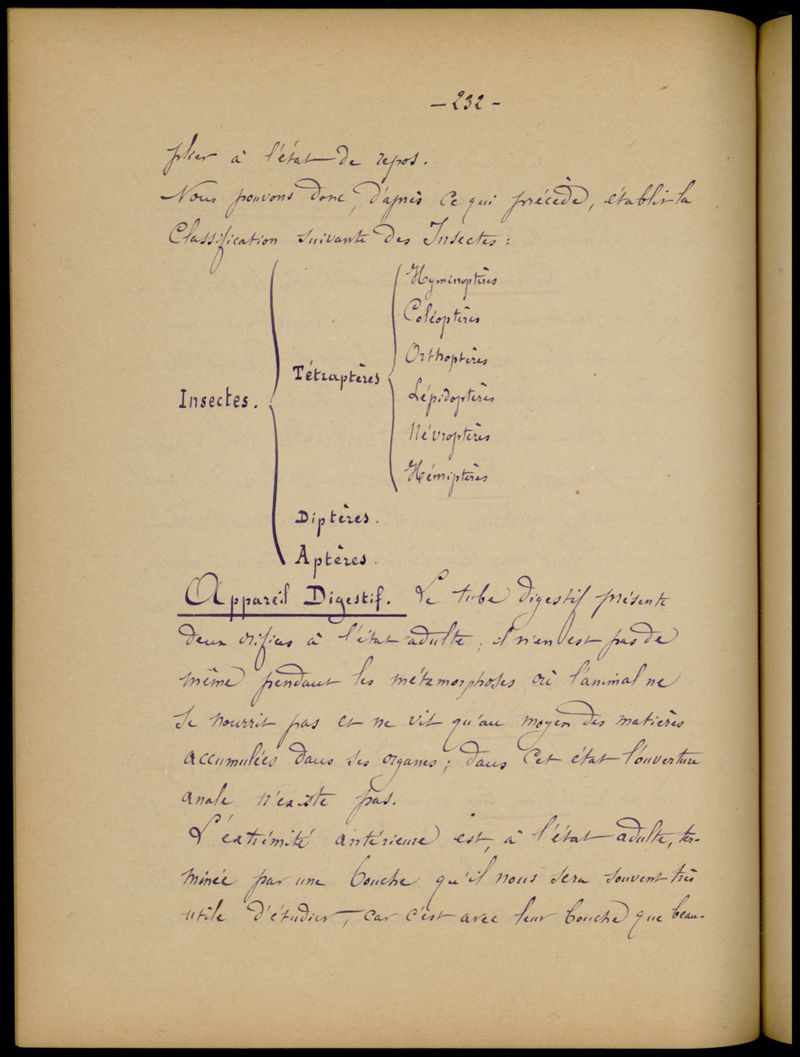 — 232 —
plier à l'état de repos.
Nous pouvons donc, d'après ce qui précède, établir la
Classification suivante des Insectes :
Hyménoptères
Coléoptères
Orthoptères
Tétraptères
Lépidoptères
Insectes.
Névroptères
Hémiptères
Diptères.
Aptères.
Appareil Digestif. Le tube digestif présente
deux orifices à l'état adulte ; il n'en est pas de
même pendant les métamorphoses où l'animal ne
se nourrit pas et ne vit qu'au moyen des matières
accumulées dans ses organes ; dans cet état l'ouverture
anale n'existe pas.
L'extrémité antérieure est, à l'état adulte, ter-
minée par une bouche qu'il nous sera souvent très
utile d'étudier, car c'est avec leur bouche que beau-